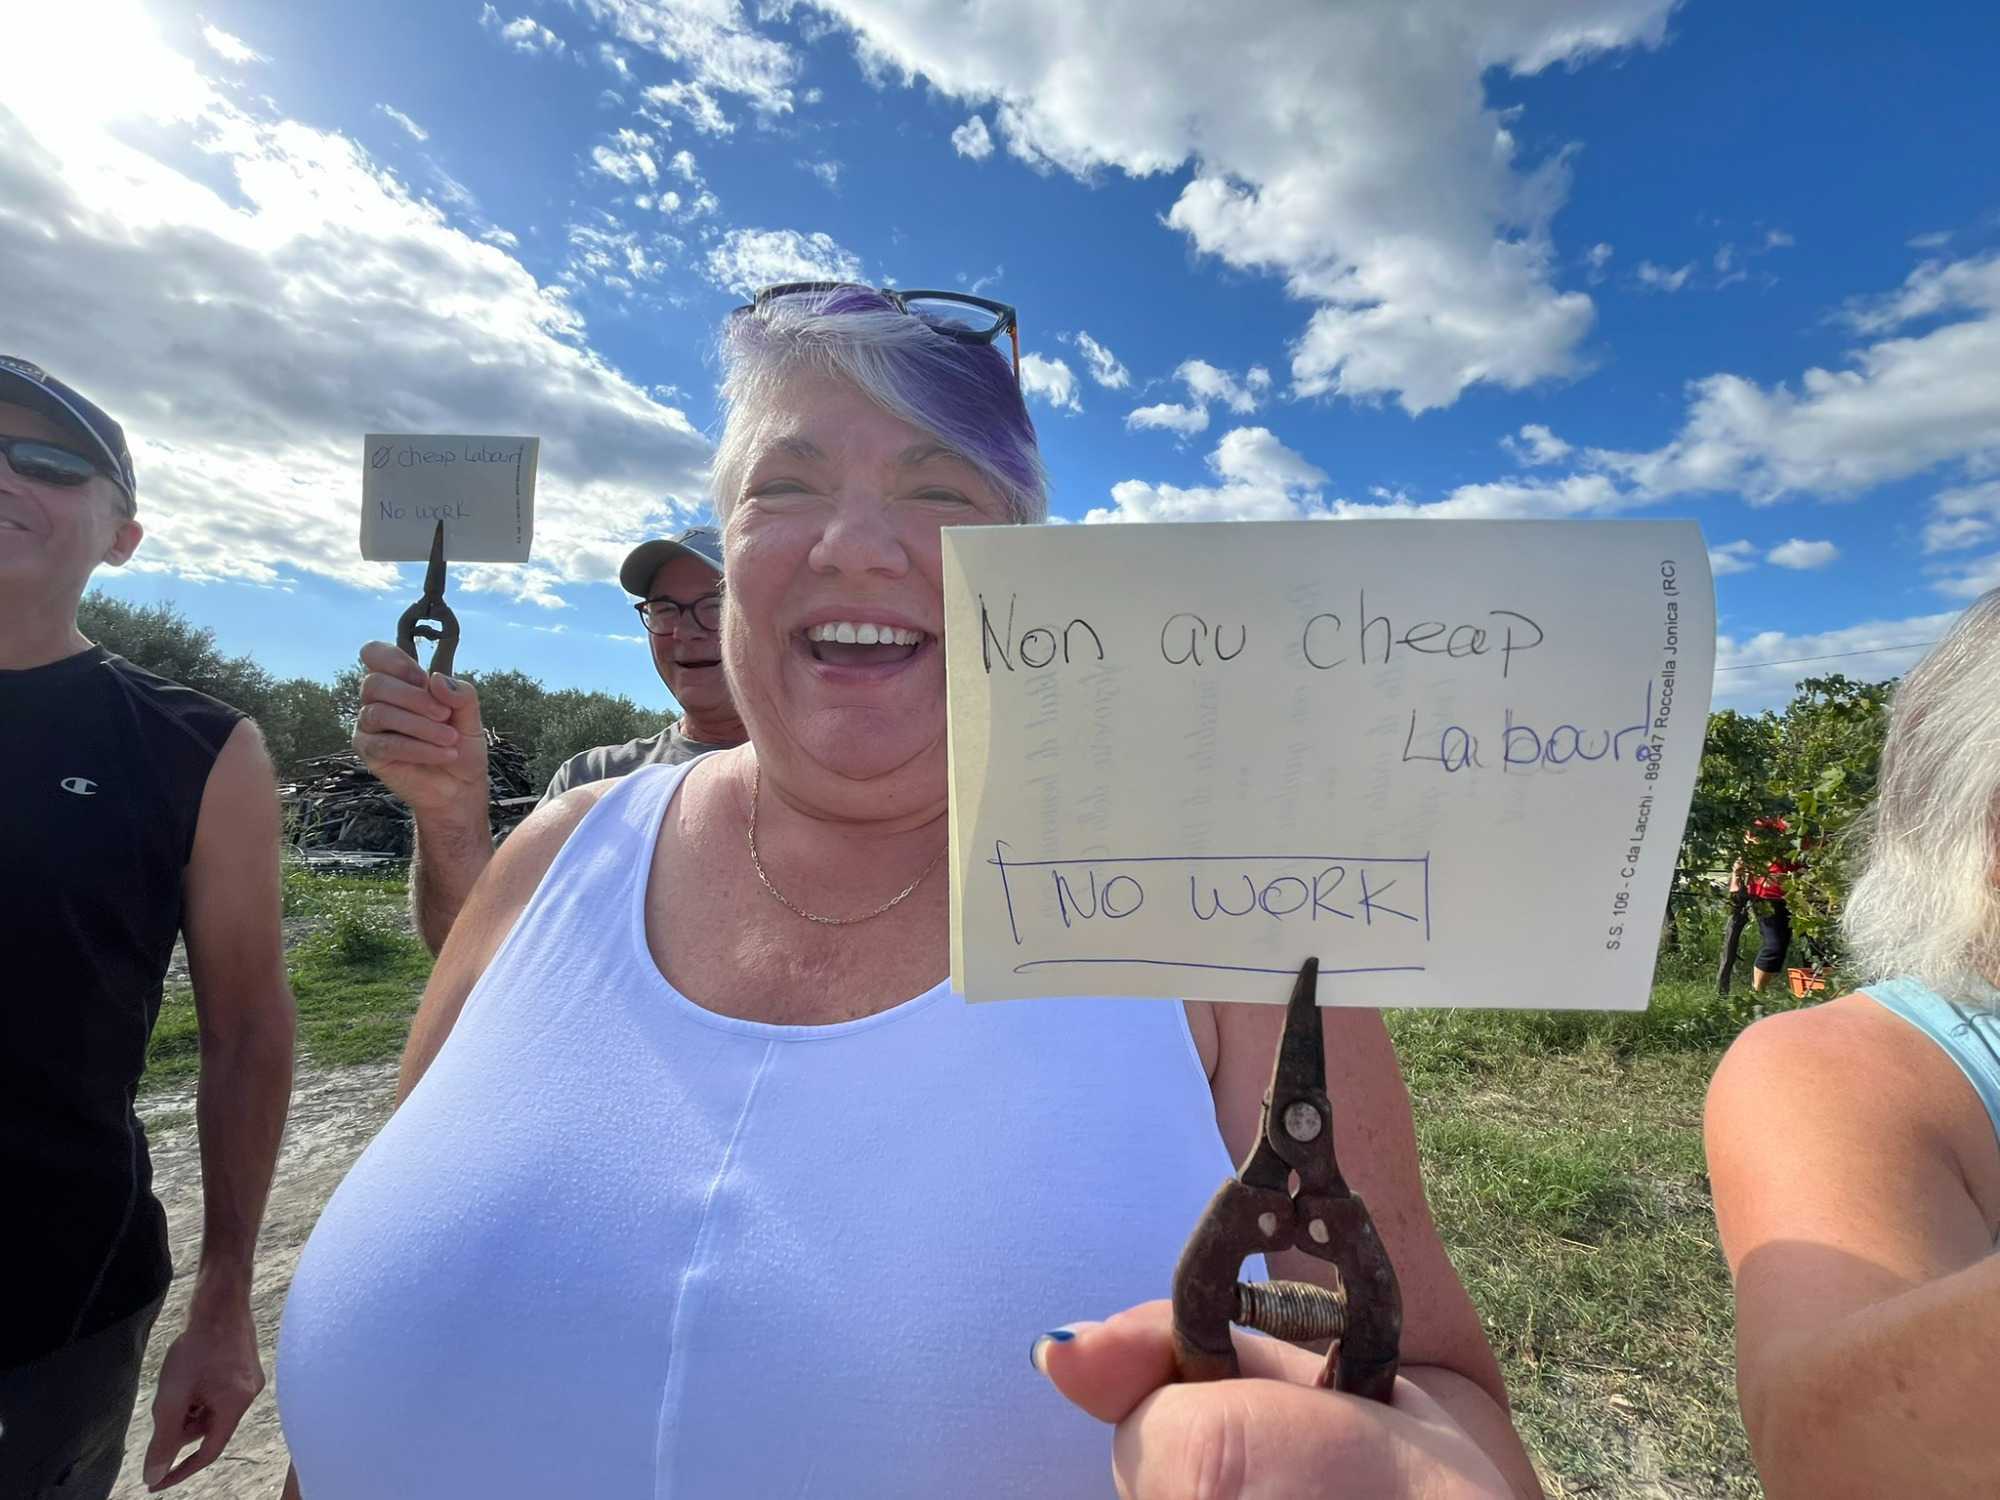 Ø cheap Labour
No WORK
Non au cheap
Labour!
NO WORK
S.S. 106 - C.da Lacchi - 89047 Roccella Jonica (RC)